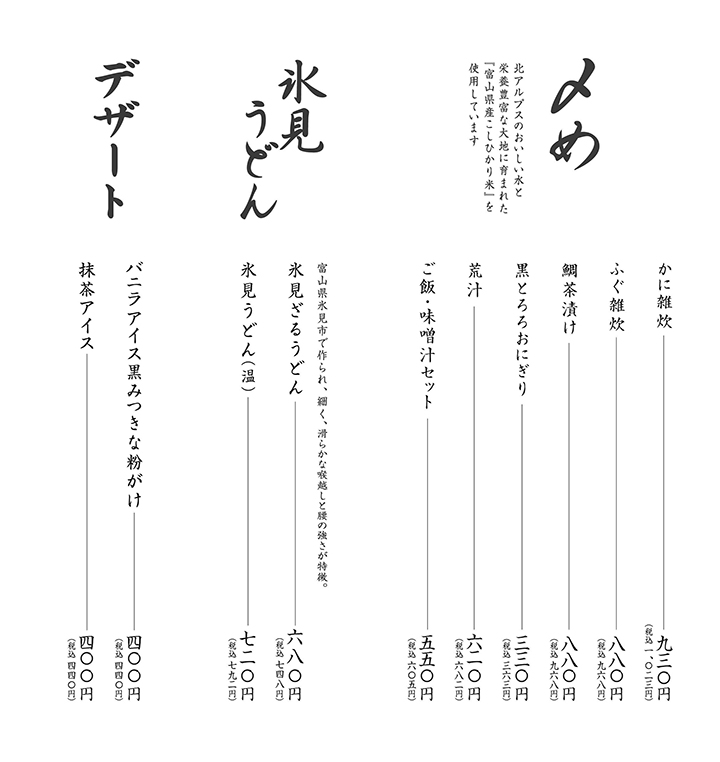 〆め
北アルプスのおいしい水と
栄養豊富な大地に育まれた
『富山県産こしひかり米』を
使用しています
かに雑炊 九三〇円
（税込 一、〇二三円）
ふぐ雑炊 八八〇円
（税込 九六八円）
鯛茶漬け 八八〇円
（税込 九六八円）
黒とろろおにぎり 三三〇円
（税込 三六三円）
荒汁 六二〇円
（税込 六八二円）
ご飯・味噌汁セット 五五〇円
（税込 六〇五円）
氷見
うどん
富山県氷見市で作られ、細く、滑らかな喉越しと腰の強さが特徴。
氷見ざるうどん 六八〇円
（税込 七四八円）
氷見うどん（温） 七二〇円
（税込 七九二円）
デザート
バニラアイス黒みつきな粉がけ 四〇〇円
（税込 四四〇円）
抹茶アイス 四〇〇円
（税込 四四〇円）